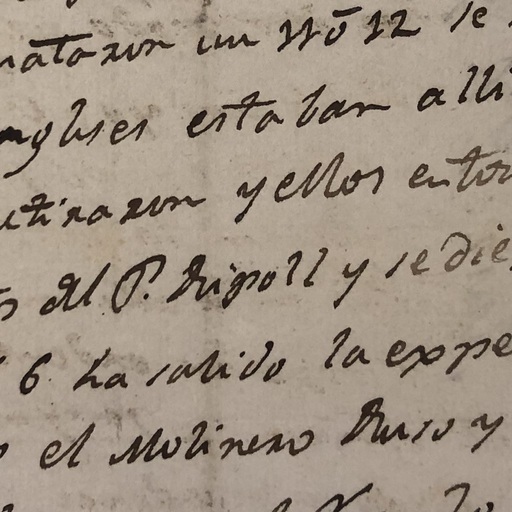 mataron un nrō 12 se
yngleses estaban alli
retiraron y ellos enton
del P. Ripoll y se die
6 ha salido la expe
el Molinero Ruso y